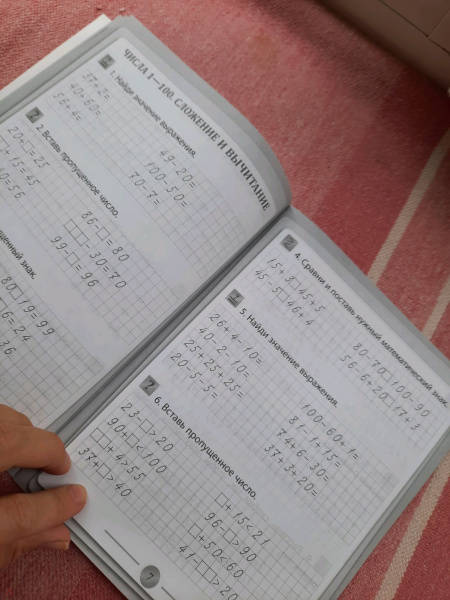 ЧИСЛА 1—100. СЛОЖЕНИЕ И ВЫЧИТАНИЕ
1. Найди значение выражения.
37+2=
49-20=
100-50=
56+4=
70-7=
2. Вставь пропущенное число.
=25
86-□=80
+15=45
□-30=70
0=56
99-□=96
знак.
80□19=99
6=24
36
4. Сравни и поставь нужный математический знак.
15+3□45+5
80-70□100-90
45-5□46+4
56-6+20□17+3
5. Найди значение выражения.
26+4-10=
100-60+1=
40-2-10=
81-1+15=
25+25+25=
74+6-30=
20-5-5=
37+3+20=
6. Вставь пропущенное число.
23-□>20
□+15<21
90+□<100
96-□>90
□+4>55
□+50<60
37+□>40
41-□>20
7